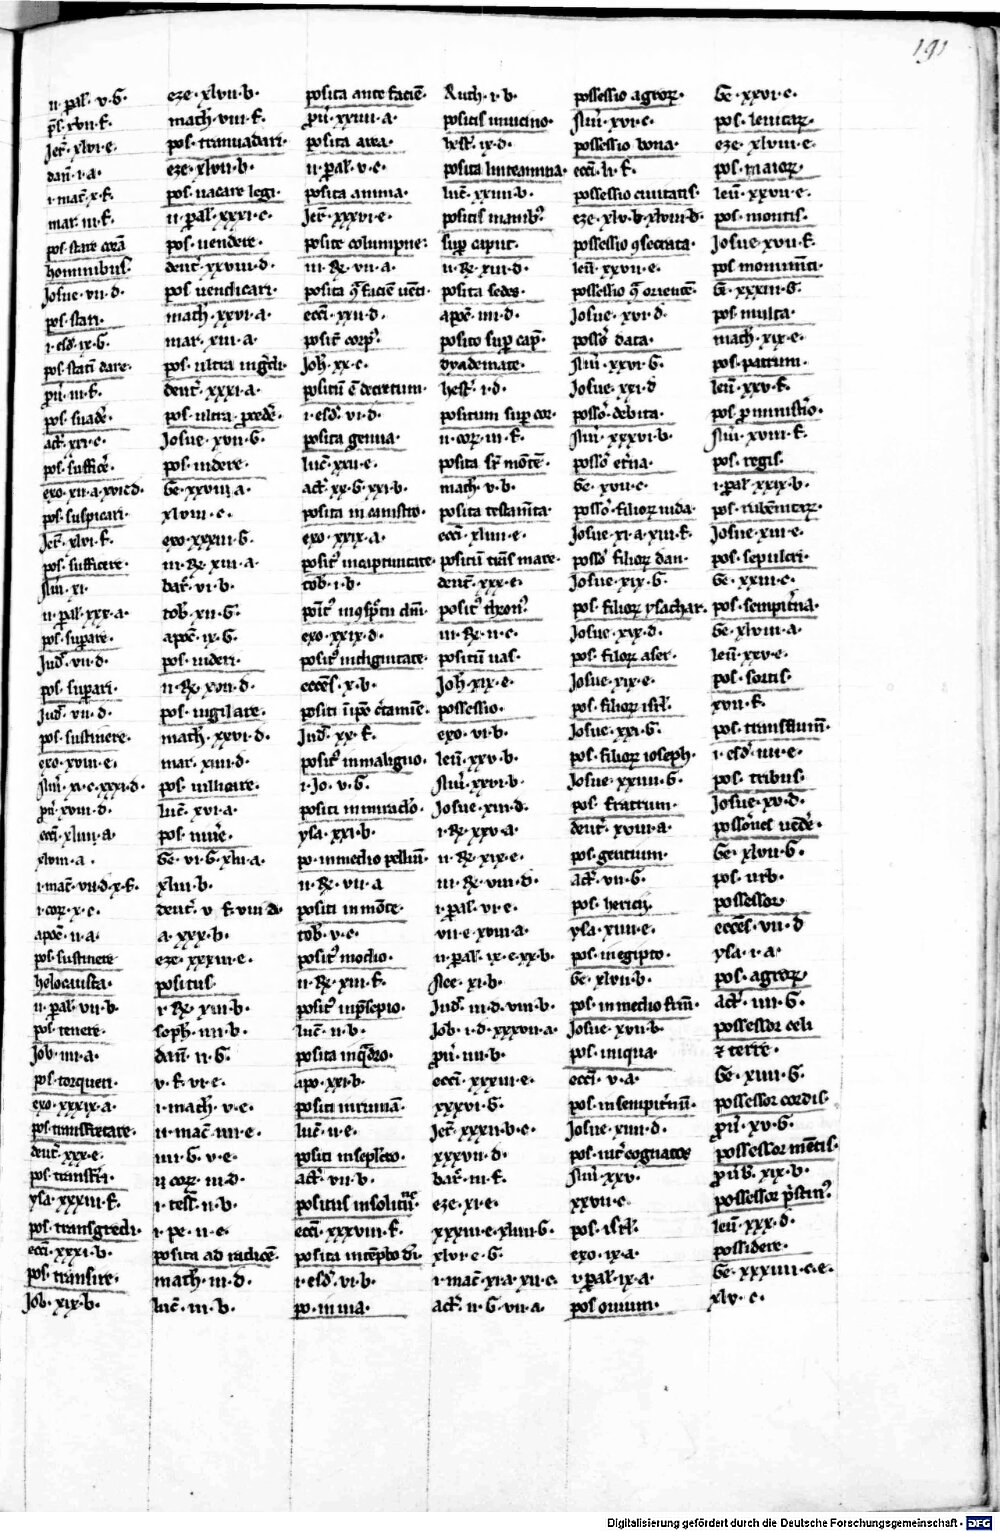 191
ii. pal. v. G.
ps. xvii. f.
Jer. xlvi. e.
dan. i. a.
i. mac. x. f.
mar. iii. f.
pos. stare corā
hominibus.
Josue. vii. d.
pos. stari.
i. esd. ix. G.
pos. statī dare.
pos. suadē.
act. xxi. e.
pos. sufficē.
exo. xii. a. xvi. d.
pos. suspicari.
Jer. xlvi. f.
pos. sufficere.
Num. xi.
ii. pal. xxx. a.
pos. supare.
Jud. vii. d.
pos. supari.
Jud. vii. d.
pos. sustinere.
exo. xviii. e.
Num. xi. c. xxxi. d.
pū. xviii. d.
ecci. xliiii. a.
xlviii. a.
i. mac. vii. d. x. f.
i. cor. x. c.
apoc. ii. a.
pos. sustinere
holocausta.
ii. pal. vii. b.
pos. tenere.
Job. iiii. a.
pos. torqueri.
exo. xxxix. a.
deut. xxx. e.
pos. transfri.
ysa. xxxiii. f.
pos. transgredi.
ecci. xxxi. b.
pos. transire.
Job. xix. b.
eze. xlvii. b.
math. viii. f.
pos. transuadari.
eze. xlvii. b.
pos. uacare legi.
ii. pal. xxxi. c.
pos. uendere.
deut. xxviii. d.
pos. uendicari.
math. xxvi. a.
mar. xiii. a.
pos. ultra ingdi.
deut. xxxi. a.
pos. ultra pcedē.
Josue. xvii. G.
pos. uidere.
Ge. xxviii. a.
xlviii. c.
exo. xxxiii. G.
iii. Re. xiii. a.
bar. vi. b.
tob. xii. G.
apoc. ix. G.
pos. uideri.
ii. Re. xvii. d.
pos. uigilare.
math. xxvi. d.
mar. xiiii. d.
pos. uillicare.
luc. xvi. a.
pos. uiuē.
Ge. vi. G. xlii. a.
xliii. b.
deut. v. f. viii. d.
a. xxx. b.
eze. xxxiii. e.
positus.
i. Re. xiii. b.
soph. iiii. b.
dan. ii. G.
v. f. vi. e.
i. mach. v. e.
ii. mac. iiii. e.
iiii. G. v. e.
ii. cor. iii. d.
i. tess. ii. b.
i. pe. ii. e.
posita ad radicē.
math. iii. d.
luc. iii. b.
posita ante faciē.
pū. xxiiii. a.
posita area.
ii. pal. v. c.
posita anima.
Jer. xxxvi. e.
posite columpne.
iii. Re. vii. a.
posita 9 faciē uēti.
ecci. xxii. d.
posit corpꝰ.
Joh. xx. c.
positū ē decretum.
i. esd. vi. d.
posita genua.
luc. xxii. e.
act. xx. G. xxi. b.
posita in canistro.
exo. xxix. a.
tob. i. b.
exo. xxix. d.
positꝰ in dignitate.
ecces. x. b.
positi ī ipō ctamīe.
Jud. xx. f.
positꝰ in maligno.
i. Jo. v. G.
positi in miraclo.
ysa. xxi. b.
po. in medio pelliū.
ii. Re. vii. a
positi in mōte.
tob. v. c.
positꝰ modio.
ii. Re. xiii. f.
positꝰ in psepio.
luc. ii. b.
posita in qdro.
apo. xxi. b.
positi in ruinā.
luc. ii. e.
positi in seplcro.
act. vii. b.
ecci. xxxviii. f.
posita in tēplo dī.
i. esd. vi. b.
po. in uia.
Ruth. i. b.
positis in uicino.
hest. ix. d.
posita linteamina.
luc. xxiiii. b.
positis manibꝰ.
sup caput.
ii. Re. xiii. d.
posita sedes.
apoc. iiii. d.
posito sup cap.
dyademate.
hest. i. d.
positum sup cor.
ii. cor. iii. f.
posita sr mōtē.
math. v. b.
posita testamta.
ecci. xliiii. e.
positū tins mare.
deut. xxx. e.
positꝰ thronꝰ.
iii. Re. ii. c.
positū uas.
Joh. xix. e.
possessio.
exo. vi. b.
leu. xxv. b.
Num. xxvi. b.
Josue. xiii. d.
i. Re. xxv. a.
ii. Re. xix. e.
iii. Re. viii. d.
i. pal. vi. e.
vii. e. xviii. a.
ii. pal. ix. c. xx. b.
Nee. xi. b.
Jud. iii. d. viii. b.
Job. i. d. xxxvii. a.
pū. iiii. b.
ecci. xxxiii. e.
xxxvi. G.
Jer. xxxii. b. e.
xxxvii. d.
bar. iii. f.
eze. xi. e.
xxxiii. e. xliiii. G.
xlvi. e. G.
i. mac. xi. a. xii. c.
act. ii. G. vii. a.
possessio agror.
Num. xvi. c.
possessio bona.
ecci. li. f.
possessio ciuitatis.
eze. xlv. b. xlviii. b.
possessio 9secrata.
leu. xxvii. e.
possessio 9 orientē.
Josue. xvi. d.
posso data.
Num. xxvi. G.
Josue. xxi. d
posso debita.
Num. xxxvi. b.
posso etna.
Ge. xvii. c.
posso filior iuda.
Josue. xi. a. xiii. f.
posso filior dan.
Josue. xix. G.
pos. filior ysachar.
Josue. xix. d.
pos. filior aser.
Josue. xix. e.
pos. filior isrl.
Josue. xxi. G.
pos. filior ioseph.
Josue. xxiiii. G.
pos. fratrum.
deut. xviii. a.
pos. gentium.
act. vii. G.
pos. hericii.
ysa. xiiii. e.
pos. in egipto.
Ge. xlvii. b.
pos. in medio frm.
Josue. xvii. b.
pos. iniqua.
ecci. v. a.
pos. in sempitnū.
Josue. xiiii. d.
pos. int cognatos
Num. xxv.
xxvii. c.
pos. isrl.
exo. ix. a.
i. pal. ix. a.
pos ouium.
Ge. xxvi. c.
pos. leuitar.
eze. xlviii. e.
pos. maior.
leu. xxvii. e.
pos. montis.
Josue. xvii. f.
pos monumti.
Ge. xxxiii. G.
pos. multa.
math. xix. e.
pos. patrum.
leu. xxv. f.
pos. p ministio.
Num. xviii. f.
pos. regis.
i. pal. xxix. b.
pos. rubenitar.
Josue. xiii. e.
pos. sepulcri.
Ge. xxiii. c.
pos. sempitna.
Ge. xlviii. a.
leu. xxv. e.
pos. sortis.
xvii. f.
i. esd. iiii. e.
pos. tribus.
Josue. xv. d.
possones uēdē.
Ge. xlvii. G.
pos. urb.
possessor
ecces. vii. d
ysa. i. a.
pos. agror.
act. iiii. G.
possessor celi
et terre.
Ge. xiiii. G.
possessor cordis.
pū. xv. G.
possessor mētis.
pūb. xix. b.
possessor pstinꝰ.
leu. xxx. d.
possidere.
Ge. xxxiiii. c. e.
xlv. c.
Digitalisierung gefördert durch die Deutsche Forschungsgemeinschaft - DFG